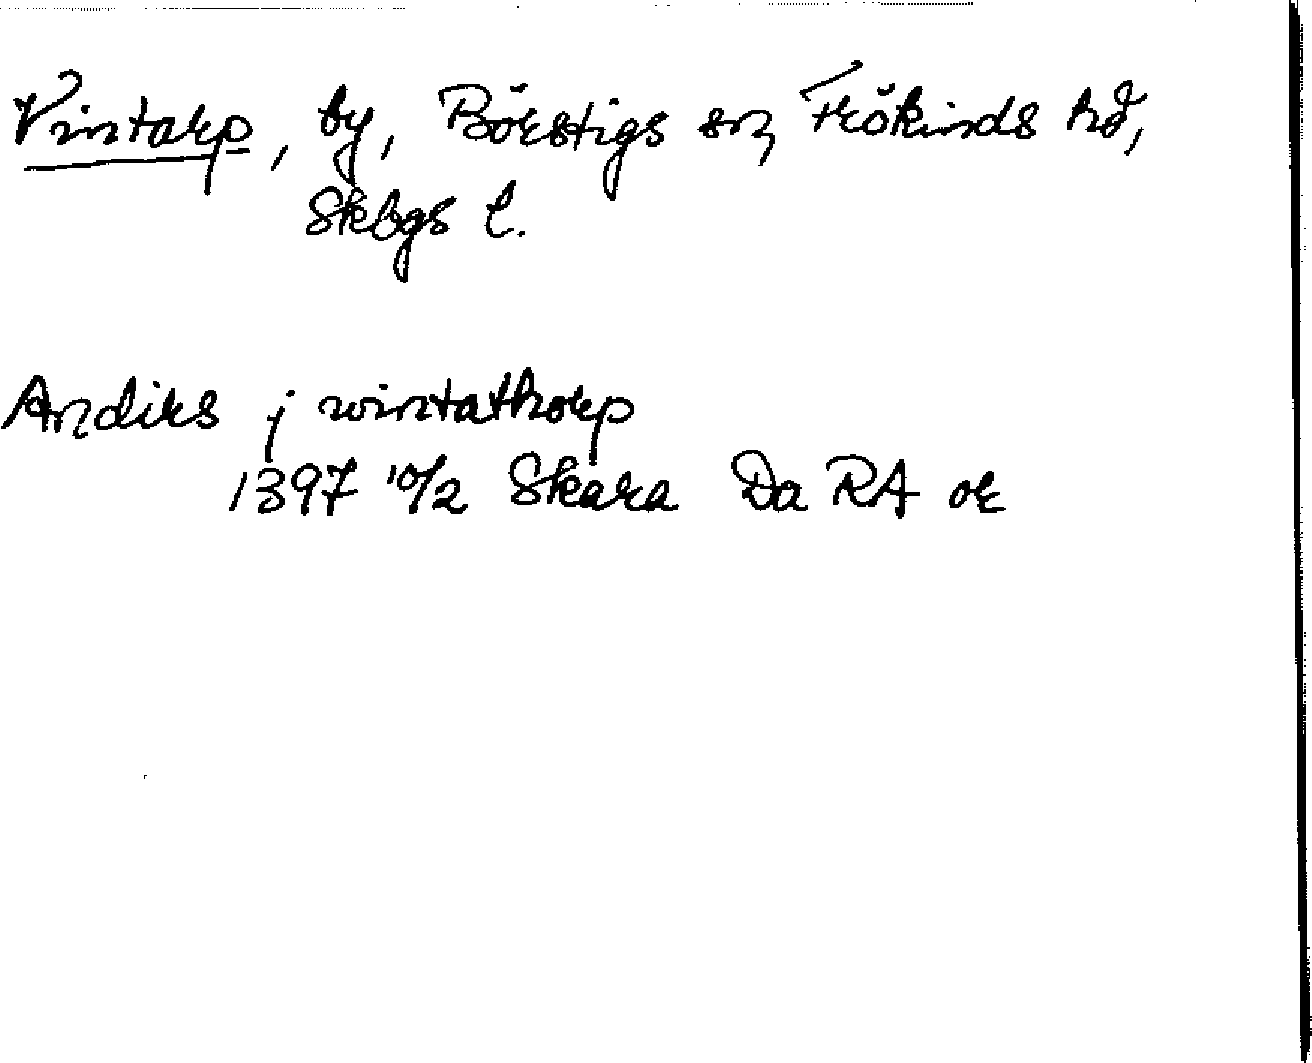 Vintarp, by, Börstigs sn, Frökinds hd,
Skbgs l.
Andirs j wintathorp
1397 10/2 Skara Da RA or